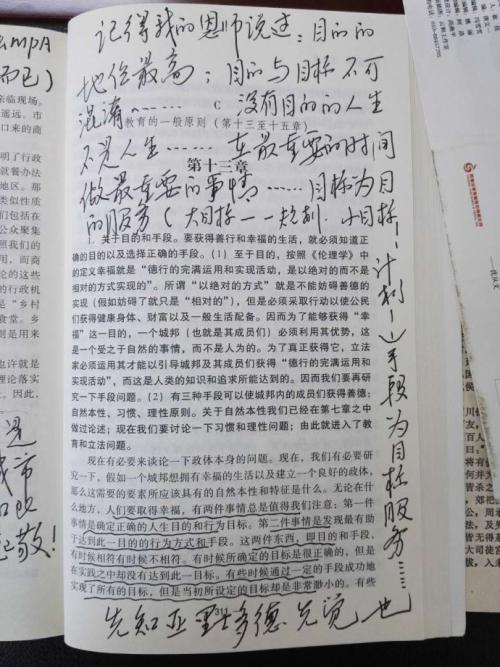 umpA
而已）
来临现场。
遥远。市
口来的商
明了行政
就餐办法
地区。那
类似性质
们包括在
公众聚集
照我们的
用，而商
论的这些
的行政机
是“乡村
食堂。乡
则是用来
也许就是
理论落实
因此，
城市
起敬！
记得我的恩师说过：目的的
地位最高；目的与目标不可
混淆……没有目的的人生
C
教育的一般原则（第十三至十五章）
不是人生……在最重要的时间
第十三章
做最重要的事情……目标为目
的服务（大目标——规划、小目标
——计划——）手段为目标服务……
1. 关于目的和手段。要获得善行和幸福的生活，就必须知道正
确的目的以及选择正确的手段。（1）至于目的，按照《伦理学》中
的定义幸福就是“德行的完满运用和实现活动，是以绝对的而不是
相对的方式实现的”。所谓“以绝对的方式”就是不能妨碍善德的
实现（假如妨碍了就只是“相对的”），但是必须采取行动以使公民
们获得健康身体、财富以及一般生活配备。因而为了能够获得“幸
福”这一目的，一个城邦（也就是其成员们）必须利用其优势，这
是一个受之于自然的事情，而不是人为的。为了真正获得它，立法
家必须运用其才能以引导城邦及其成员们获得“德行的完满运用和
实现活动”，而这是人类的知识和追求所能达到的。因而我们要再研
究一下手段问题。（2）有三种手段可以使城邦内的成员们获得善德：
自然本性、习惯、理性原则。关于自然本性我们已经在第七章之中
做过论述；现在我们要讨论一下习惯和理性问题；由此就进入了教
育和立法问题。
现在有必要来谈论一下政体本身的问题。现在，我们有必要研
究一下，假如一个城邦想拥有幸福的生活以及建立一个良好的政体，
那么这需要的要素所应该具有的自然本性和特征是什么。无论在什
么地方，人们要取得幸福，有两件事情总是值得我们注意：第一件
事情是确定正确的人生目的和行为目标。第二件事情是发现最有助
于达到此一目的的行为方式和手段。这两件东西，即目的和手段，
有时候相符有时候不相符。有时候所确定的目标是很正确的，但是
在实践之中却没有达到此一目标。有些时候通过一定的手段成功地
实现了所有的目标，但是当初所设定的目标却是非常渺小的。有些
先知亚里士多德先觉也